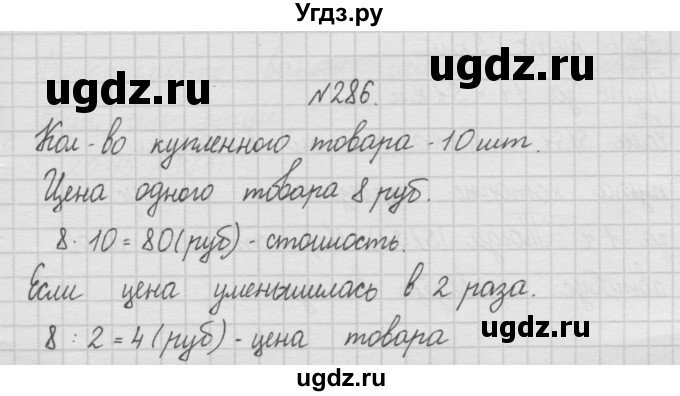 Угдз.ру
ugdz.ru
ugdz.ru
№286.
Кол-во купленного товара - 10 шт.
Цена одного товара 8 руб.
8 · 10 = 80 (руб) - стоимость.
Если цена уменьшилась в 2 раза.
8 : 2 = 4 (руб) - цена товара
ugdz.ru
ugdz.ru
ugdz.ru